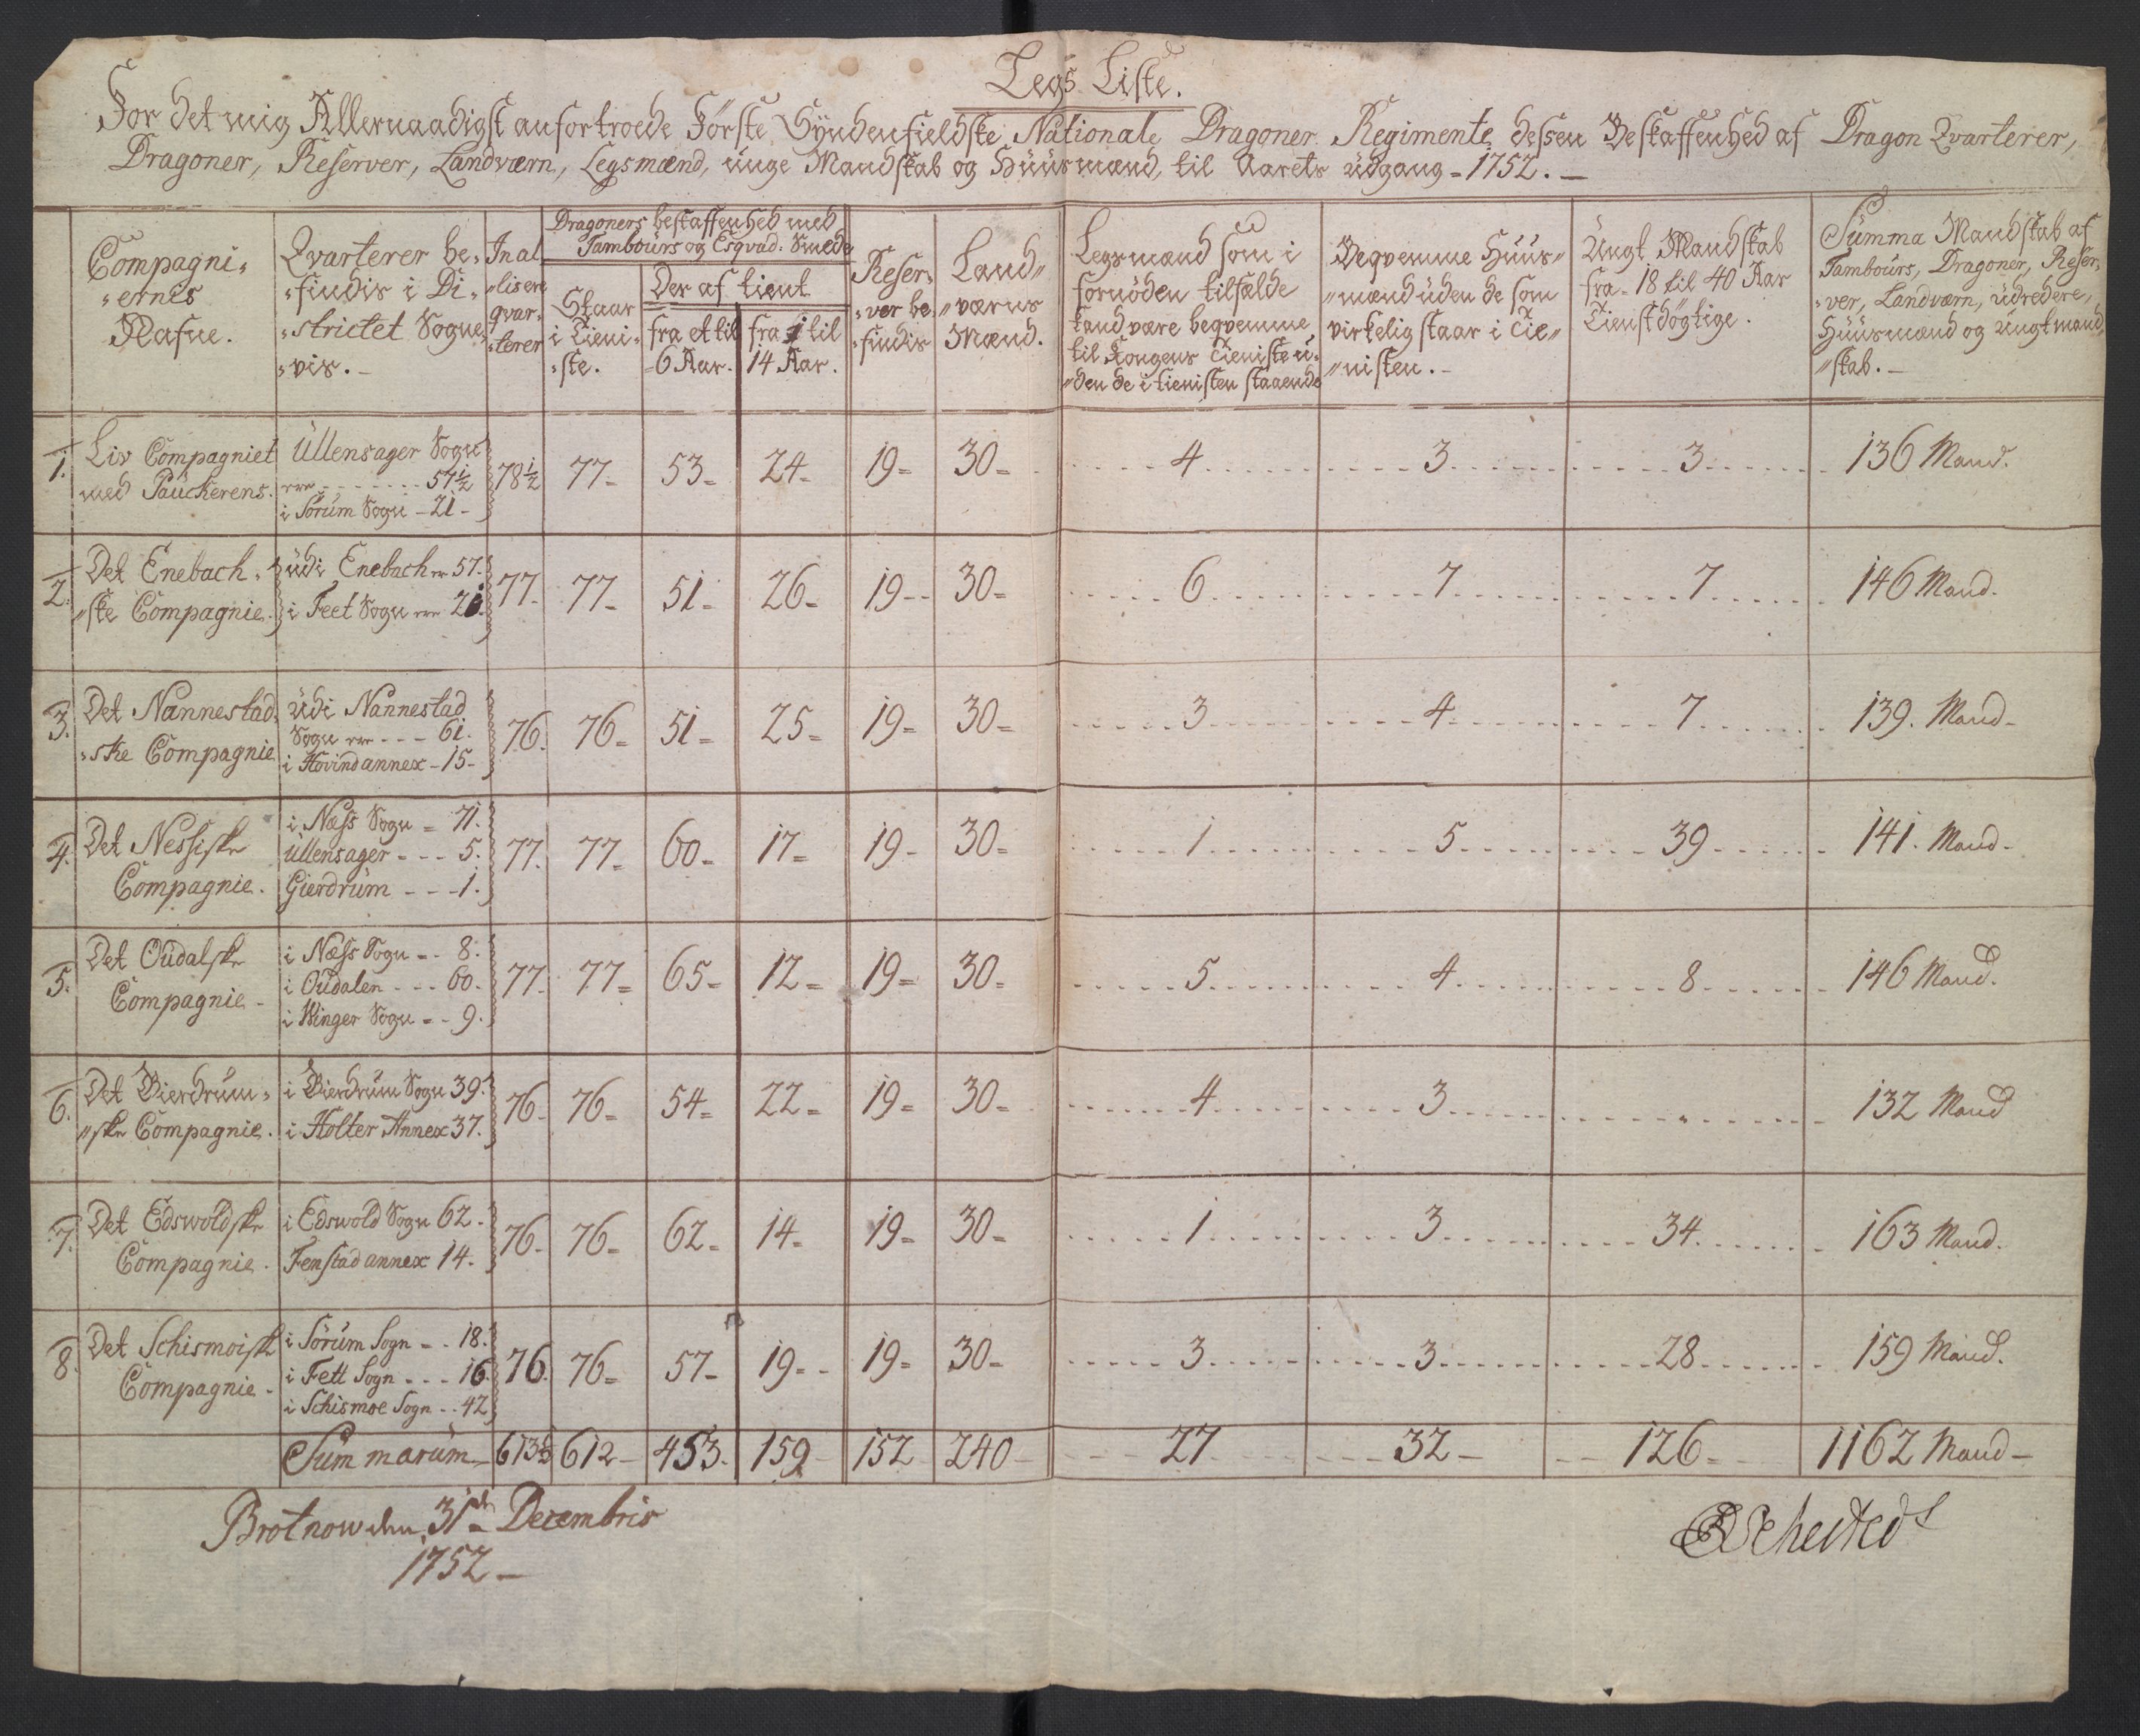 Legs Liste.
For det mig Allernaadigst anfortroede Förste Syndenfieldske Nationale Dragoner Regimente, dessen Beskaffenhed af Dragon Qvarterer,
Dragoner, Reserver, Landværn, Legsmænd, unge Mandskab og Huusmænd, til Aarets udgang - 1752. -
Compagni-
-ernes
Nafne.
Qvarterer be-
-findis i Di-
-strictet Sogne-
-vis. -
In al
-lis ere
qvar-
-terer
Dragoners beskaffenhed med
Tambours og Esqvad: Smede
Staar
i Tieni-
-ste.
Der af tient
fra et til
6 Aar.
fra 1 til
14 Aar.
Reser-
-ver be-
-findis
Land-
-værns
Mænd.
Legsmænd som i
fornöden tilfælde
kand være beqvemme
til Kongens tieniste u-
-den de i tienisten staaende
Beqvemme Huus-
-mænd uden de som
virkelig staar i tie-
-nisten. -
Ungt Mandskab
fra - 18 til 40 Aar
tienstdögtige.
Summa Mandskab af
Tambours, Dragoner, Reser-
-ver, Landværn, udredere,
Huusmænd og ungt mand-
-skab. -
1. Liv Compagniet
med Pauckerens.
Ullensager Sogn
ere - - - 57½
i Sörum Sogn - 21 -
78½ 77- 53- 24- 19- 30- 4 3 3 136 Mand.
2. Det Enebach-
-ske Compagnie.
udi Enebach er 57.
i Feet Sogn ere 20.
77. 77- 51- 26- 19- 30- 6 7 7 146 Mand.
3. Det Nannestad-
-ske Compagnie
udi Nannestad
Sogn ere - - - 61.
i Hovind annex - 15-
76. 76- 51- 25- 19- 30- 3 4 7 139. Mand-
4. Det Nessiske
Compagnie.
i Næss Sogn - 71.
Ullensager - - - 5.
Gierdrum - - - 1.
77. 77- 60- 17- 19- 30- 1 5 39 141. Mand-
5. Det Oudalske
Compagnie -
i Næss Sogn - - 8.
i Oudalen - - - 60.
i Winger Sogn - - 9.
77. 77- 65- 12- 19- 30- 5 4 8 146 Mand.
6. Det Gierdrum-
-ske Compagnie.
i Gierdrum Sogn 39.
i Holter Annex 37.
76- 76- 54- 22- 19- 30- 4 3 132 Mand
7. Det Edswoldske
Compagnie.
i Edswold Sogn 62.
Fenstad annex 14.
76. 76- 62- 14- 19- 30- 1 3 34 163 Mand.
8. Det Schismoiske
Compagnie -
i Sörum Sogn - - 18.
i Fett Sogn - - - 16.
i Schismoe Sogn - - 42
76. 76- 57- 19- - 19- 30- 3 3 28 159 Mand.
Summarum - 613½ 612- 453- 159- 152 240- 27 32- 126- 1162 Mand-
Brotnow den 31te Decembris
1752 -